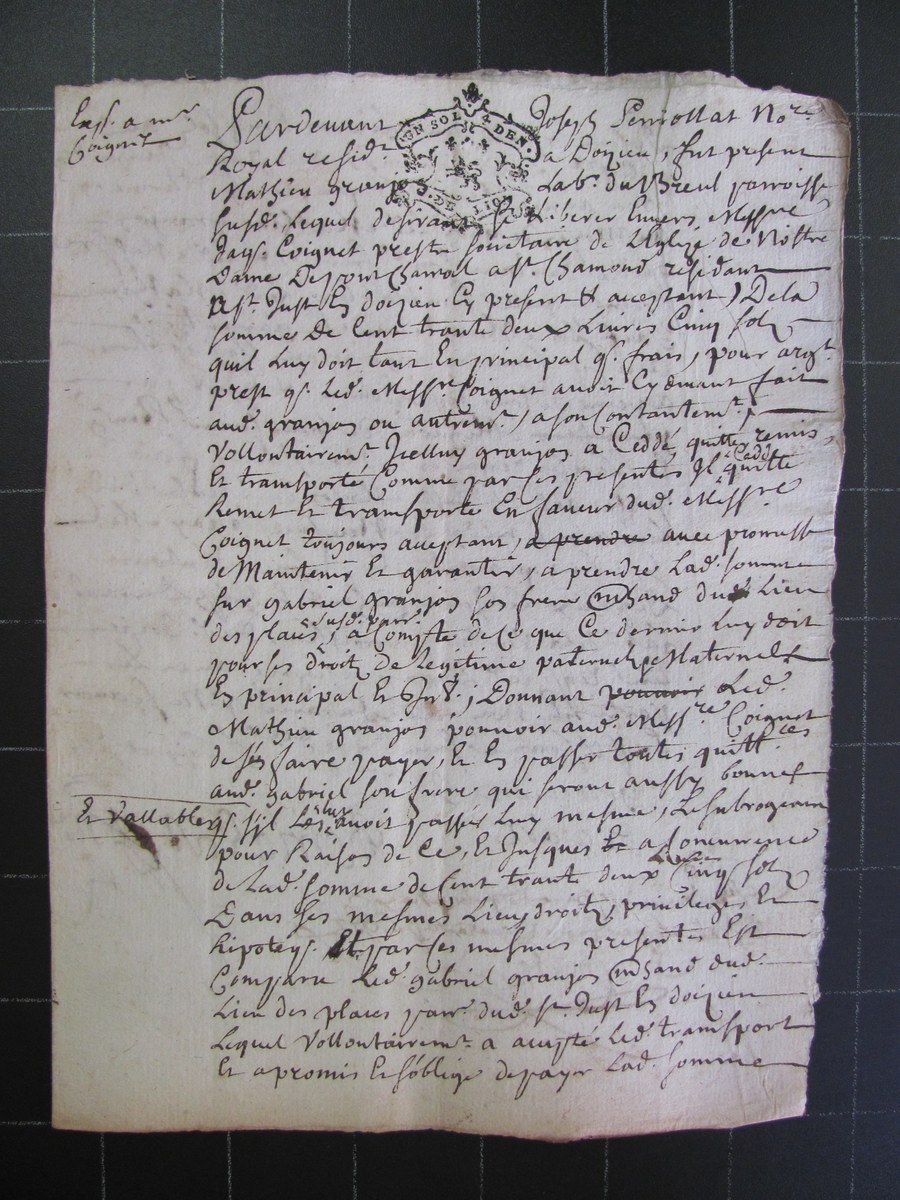 Exp. a mr
Coignet
UN SOL 4 DEN.
Pardevant Joseph Perriollat Nore
Royal resid.t a Doizieu, fut present
Mathieu granjon Labr. du Breul parroisse
susd., Lequel desirant se Liberer Envers Messre
Coignet prestre societaire de L'Eglize de Nostre
Dame a st. Chamond residant
A st. Just En doizieu Cy present & acceptant, De la
somme de Cent trante deux Livres Cinq solz
quil Luy doit tant En principal q. frais, pour argt.
prest q. Led. Messre Coignet avoit Cydevant fait
aud. granjon ou autremt., a son Contantemt.,
Vollontairemt. Icelluy granjon a Ceddé, quitté, remis,
Et transporté Comme par ses presentes Il Cedde quitte
Remet Et transporte En faveur dud. Messre
Coignet toujours aceptant, a prendre avec promesse
de Maintenir Et garantir, a prendre Lad. somme
sur gabriel granjon son frere mchand dud. Lieu
des places, susd. parr. a Compte de Ce que Ce dernier Luy doit
pour ses droitz de Legitime paternelz & Maternelz
En principal Et ; Donnant pouvoir Led.
Mathieu granjon pouvoir aud. Messre Coignet
de s'En faire payer, & En passer toutes quittces
aud. gabriel son frere qui seront aussy bonnes
Et Vallables q. s'il Les Luy avoit passés Luy mesme, Le subrogeant
pour Raison de Ce, Et Jusques Et a Concurrence
de Lad. somme de Cent trante deux Livres Cinq solz
Dans ses mesmes Lieu, droitz, privileges Et
hipoteqs. Et par ses mesmes presentes Est
Comparu Led. gabriel granjon mchand dud.
Lieu des places parr. dud. st. Just En doizieu
Lequel Vollontairemt. a accepté Led. transport
Et a promis Et s'oblige de payer Lad. somme